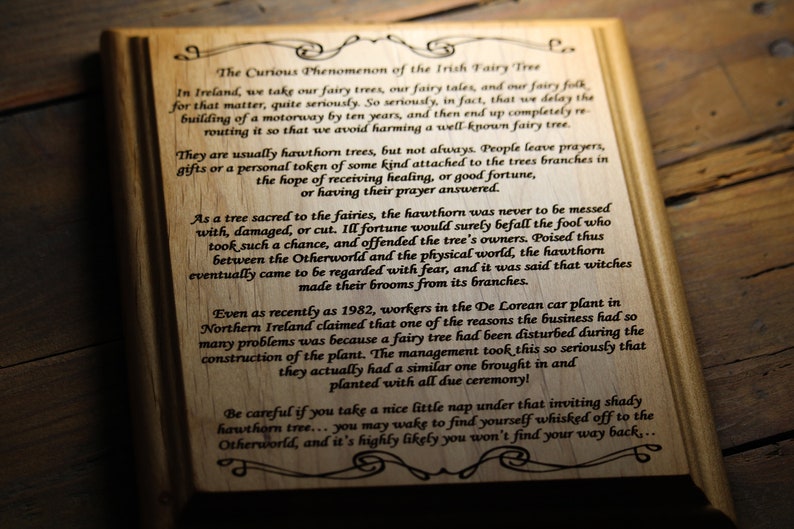 The Curious Phenomenon of the Irish Fairy Tree
In Ireland, we take our fairy trees, our fairy tales, and our fairy folk
for that matter, quite seriously. So seriously, in fact, that we delay the
building of a motorway by ten years, and then end up completely re-
routing it so that we avoid harming a well-known fairy tree.
They are usually hawthorn trees, but not always. People leave prayers,
gifts or a personal token of some kind attached to the trees branches in
the hope of receiving healing, or good fortune,
or having their prayer answered.
As a tree sacred to the fairies, the hawthorn was never to be messed
with, damaged, or cut. Ill fortune would surely befall the fool who
took such a chance, and offended the tree's owners. Poised thus
between the Otherworld and the physical world, the hawthorn
eventually came to be regarded with fear, and it was said that witches
made their brooms from its branches.
Even as recently as 1982, workers in the De Lorean car plant in
Northern Ireland claimed that one of the reasons the business had so
many problems was because a fairy tree had been disturbed during the
construction of the plant. The management took this so seriously that
they actually had a similar one brought in and
planted with all due ceremony!
Be careful if you take a nice little nap under that inviting shady
hawthorn tree... you may wake to find yourself whisked off to the
Otherworld, and it's highly likely you won't find your way back...